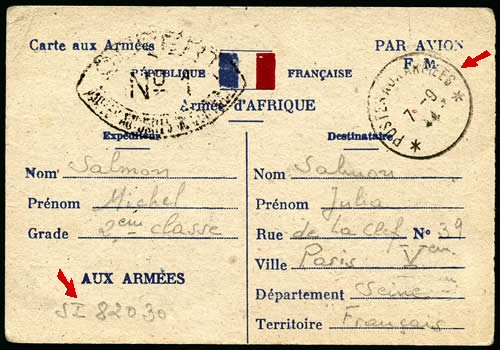 Carte aux Armées
PAR AVION
F. M.
RÉPUBLIQUE FRANÇAISE
Nº 1
Armée d'AFRIQUE
POSTES AUX ARMÉES
7-9
44
Expéditeur
Nom Salmon
Prénom Michel
Grade 2ème classe
AUX ARMÉES
SI 82030
Destinataire
Nom Salmon
Prénom Julia
Rue de la Clef Nº 39
Ville Paris Vem
Département Seine
Territoire Français